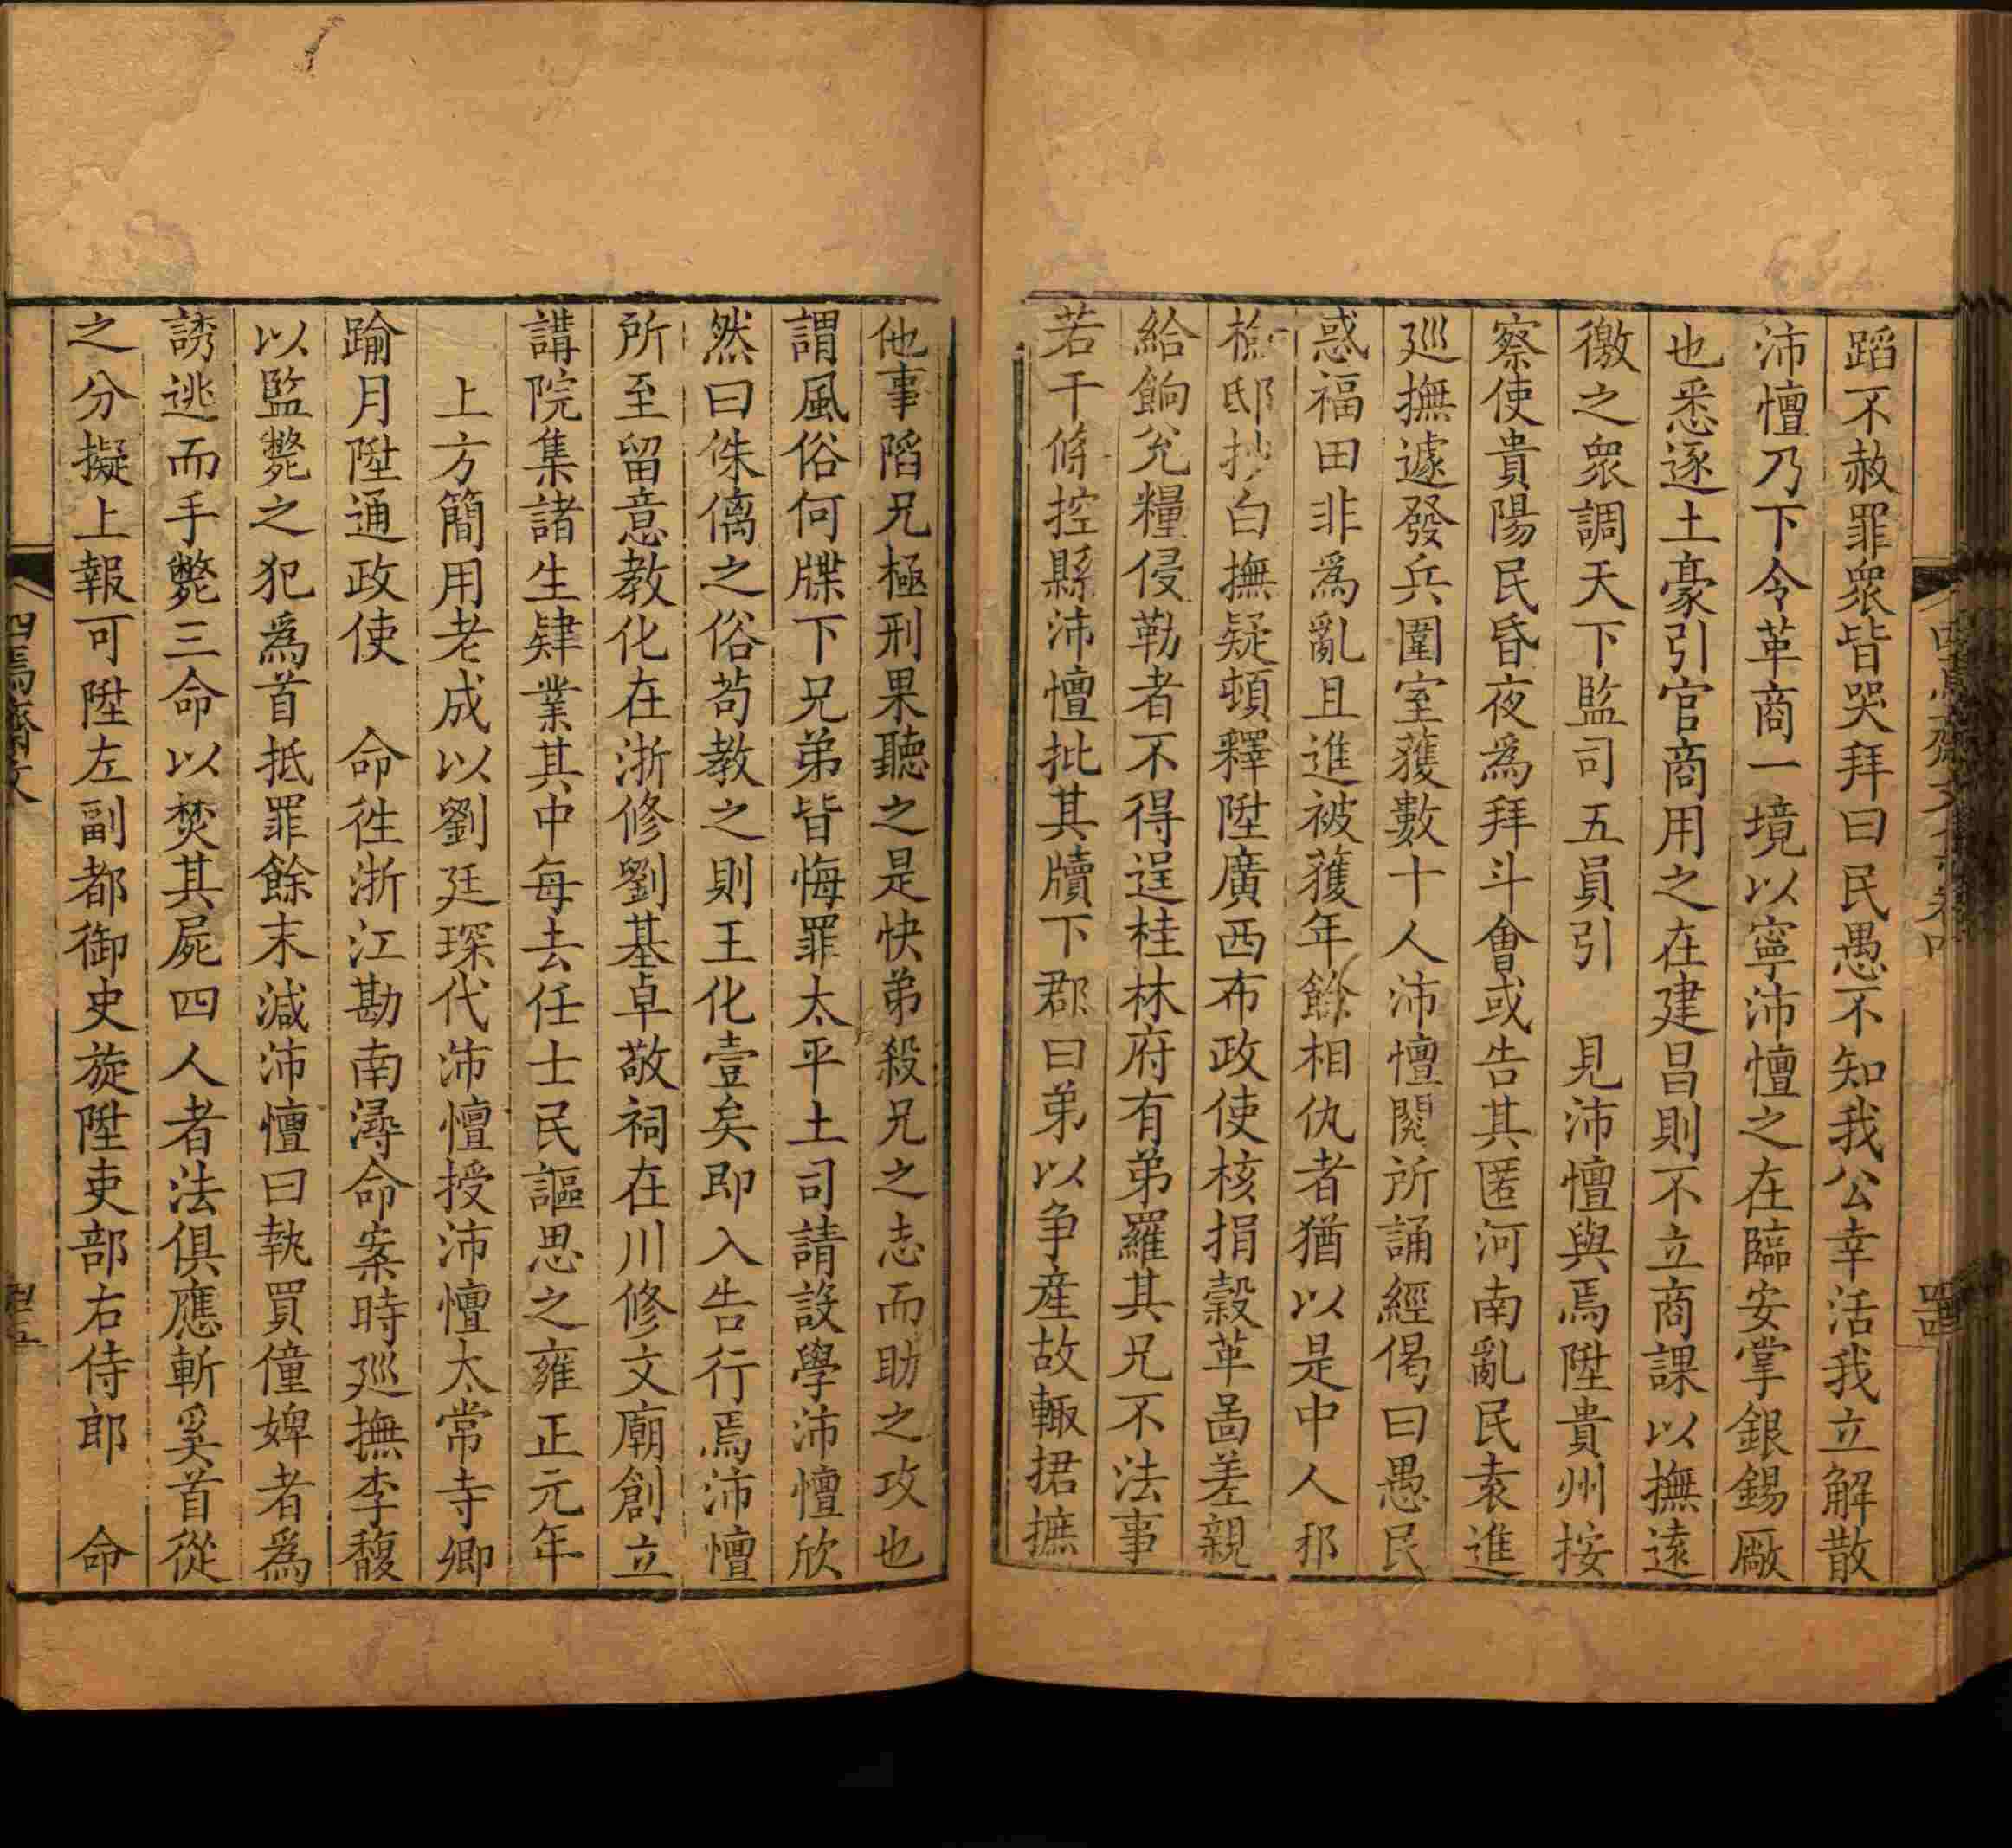 蹈不赦罪衆皆哭拜曰民愚不知我公幸活我立解散
沛憻乃下令革商一境以寧沛憻之在臨安掌銀錫廠
也悉逐土豪引官商用之在建昌則不立商課以撫遠
徼之衆調天下監司五員引　見沛憻與焉陞貴州按
察使貴陽民昏夜為拜斗會或告其匿河南亂民袁進
廵撫遽發兵圍室獲數十人沛憻閱所誦經偈曰愚民
惑福田非爲亂且進被獲年餘相仇者猶以是中人邪
檢邸抄白撫疑頓釋陞廣西布政使核捐穀革啚差親
給餉兊糧侵勒者不得逞桂林府有弟羅其兄不法事
若干條控縣沛憻批其牘下郡曰弟以争産故輙捃摭
他事䧟兄極刑果聽之是快弟殺兄之志而助之攻也
謂風俗何牒下兄弟皆悔罪太平土司請設學沛憻欣
然曰侏㒧之俗苟教之則王化壹矣即入告行焉沛憻
所至留意教化在浙修劉基卓敬祠在川修文廟創立
講院集諸生肄業其中每去任士民謳思之雍正元年
上方簡用老成以劉廷琛代沛憻授沛憻太常寺卿
踰月陞通政使　命徃浙江勘南潯命案時廵撫李馥
以監斃之犯爲首抵罪餘末減沛憻曰執買僮婢者爲
誘逃而手斃三命以焚其屍四人者法俱應斬奚首從
之分擬上報可陞左副都御史旋陞吏部右侍郎　命
四焉齋文